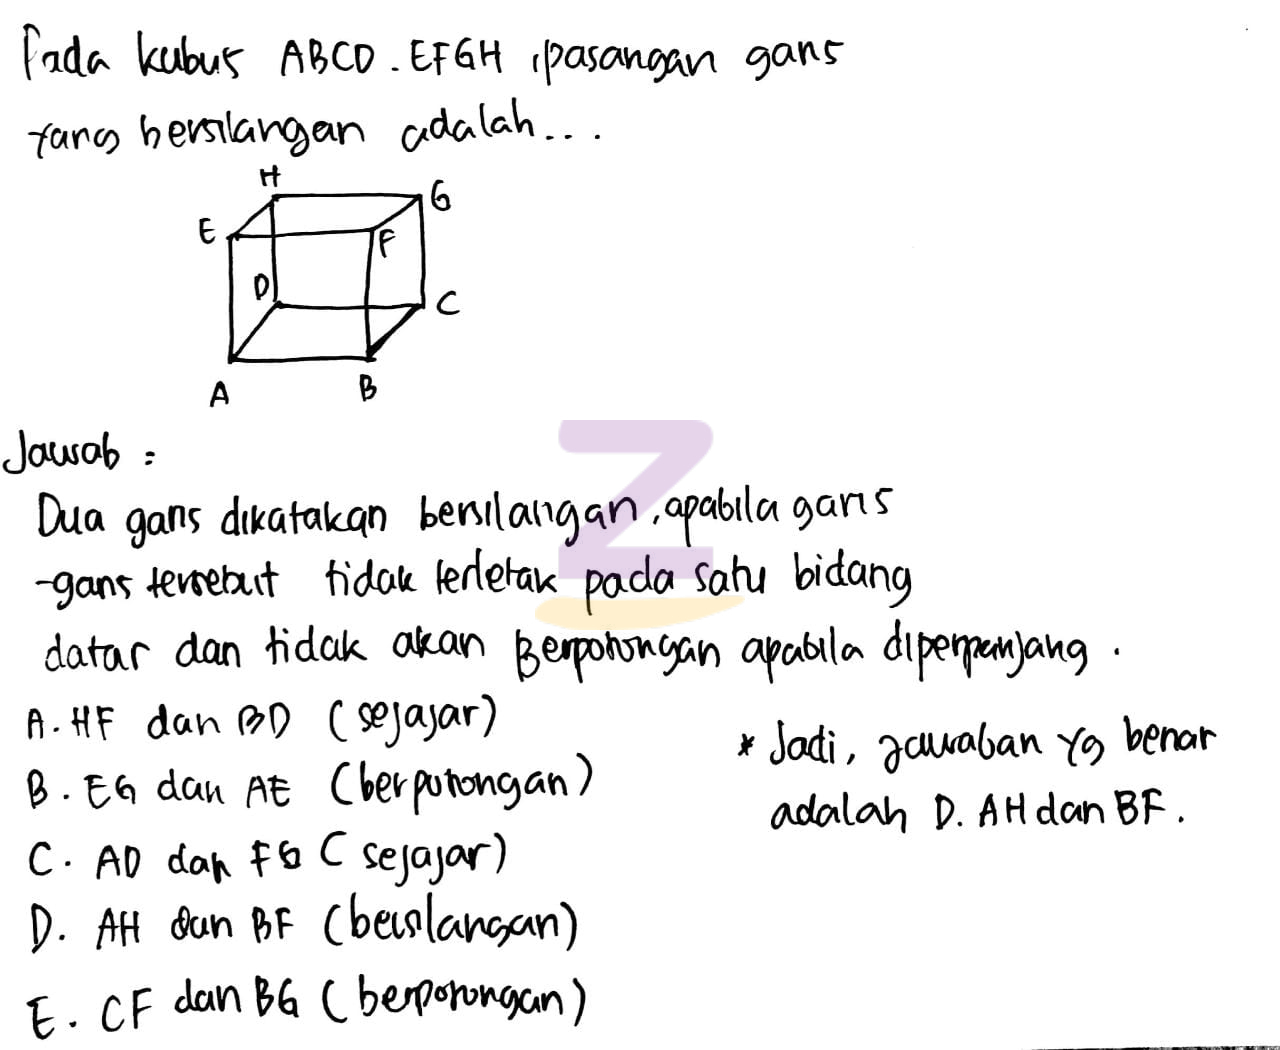 Pada kubus ABCD.EFGH, pasangan garis
yang bersilangan adalah...
H
G
E
F
D
C
A
B
Jawab :
Dua garis dikatakan bersilangan, apabila garis
-garis tersebut tidak terletak pada satu bidang
datar dan tidak akan Berpotongan apabila diperpanjang.
A. HF dan BD (sejajar)
B. EG dan AE (berpotongan)
C. AD dan FG (sejajar)
D. AH dan BF (bersilangan)
E. CF dan BG (berpotongan)
* Jadi, jawaban yg benar
adalah D. AH dan BF.
Z